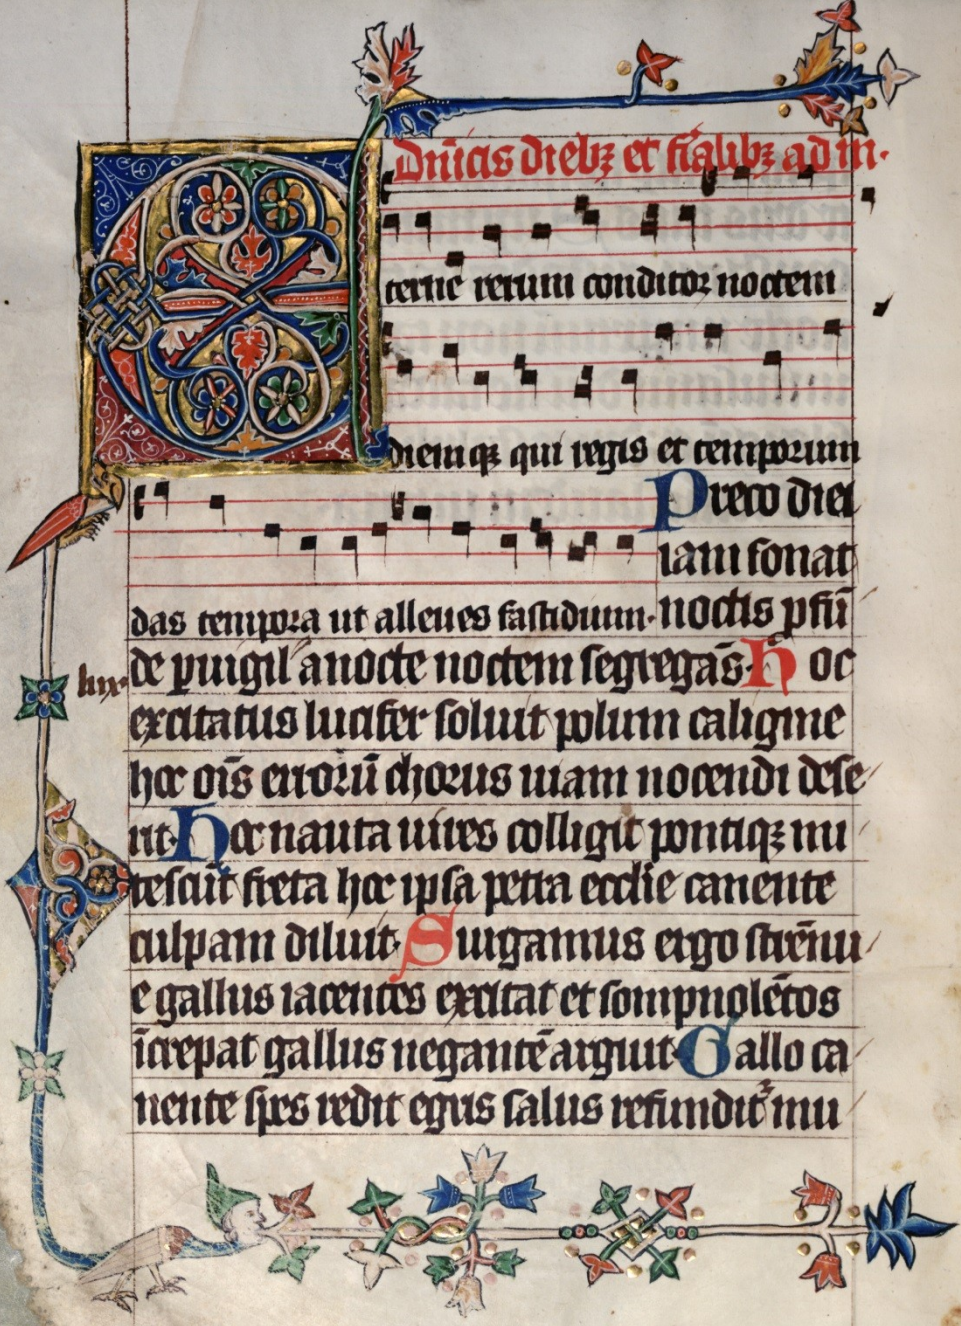 Dn̄icis dieb3 et fīalib3 ad m̄.
Eterne rerum conditor noctem
diemq3 qui regis et temporum
Preco diei
iam sonat
das tempora ut alleues fastidium. noctis pfū
lux. de puigil anocte noctem segregās. Hoc
excitatus lucifer soluit polum caligine
hoc oīs errorū chorus uiam nocendi dese
rit. Hoc nauta uires colligit pontiq3 mi
tescūt freta hoc ipsa petra ecclie canente
culpam diluit. Surgamus ergo strēnu
e gallus iacentes excitat et sompnolētos
īcrepat gallus negantē arguit. Gallo ca
nente spes redit egris salus refundit᷑ mu